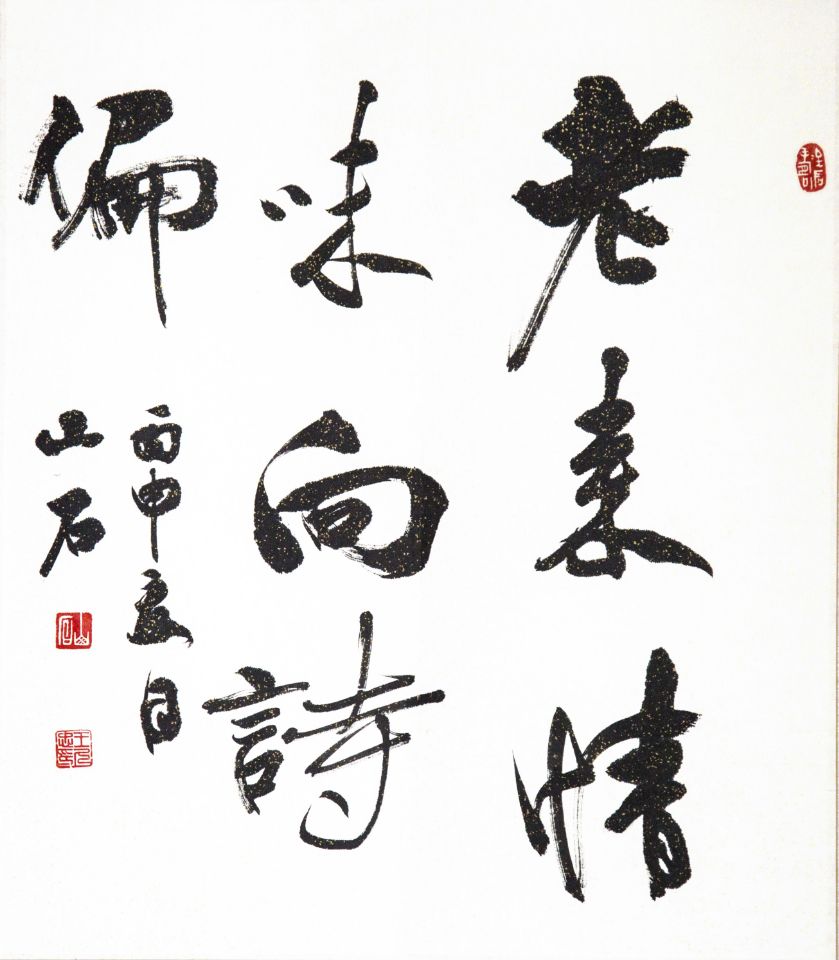 老来情
味向詩
偏
丙申夏日
山石
山石